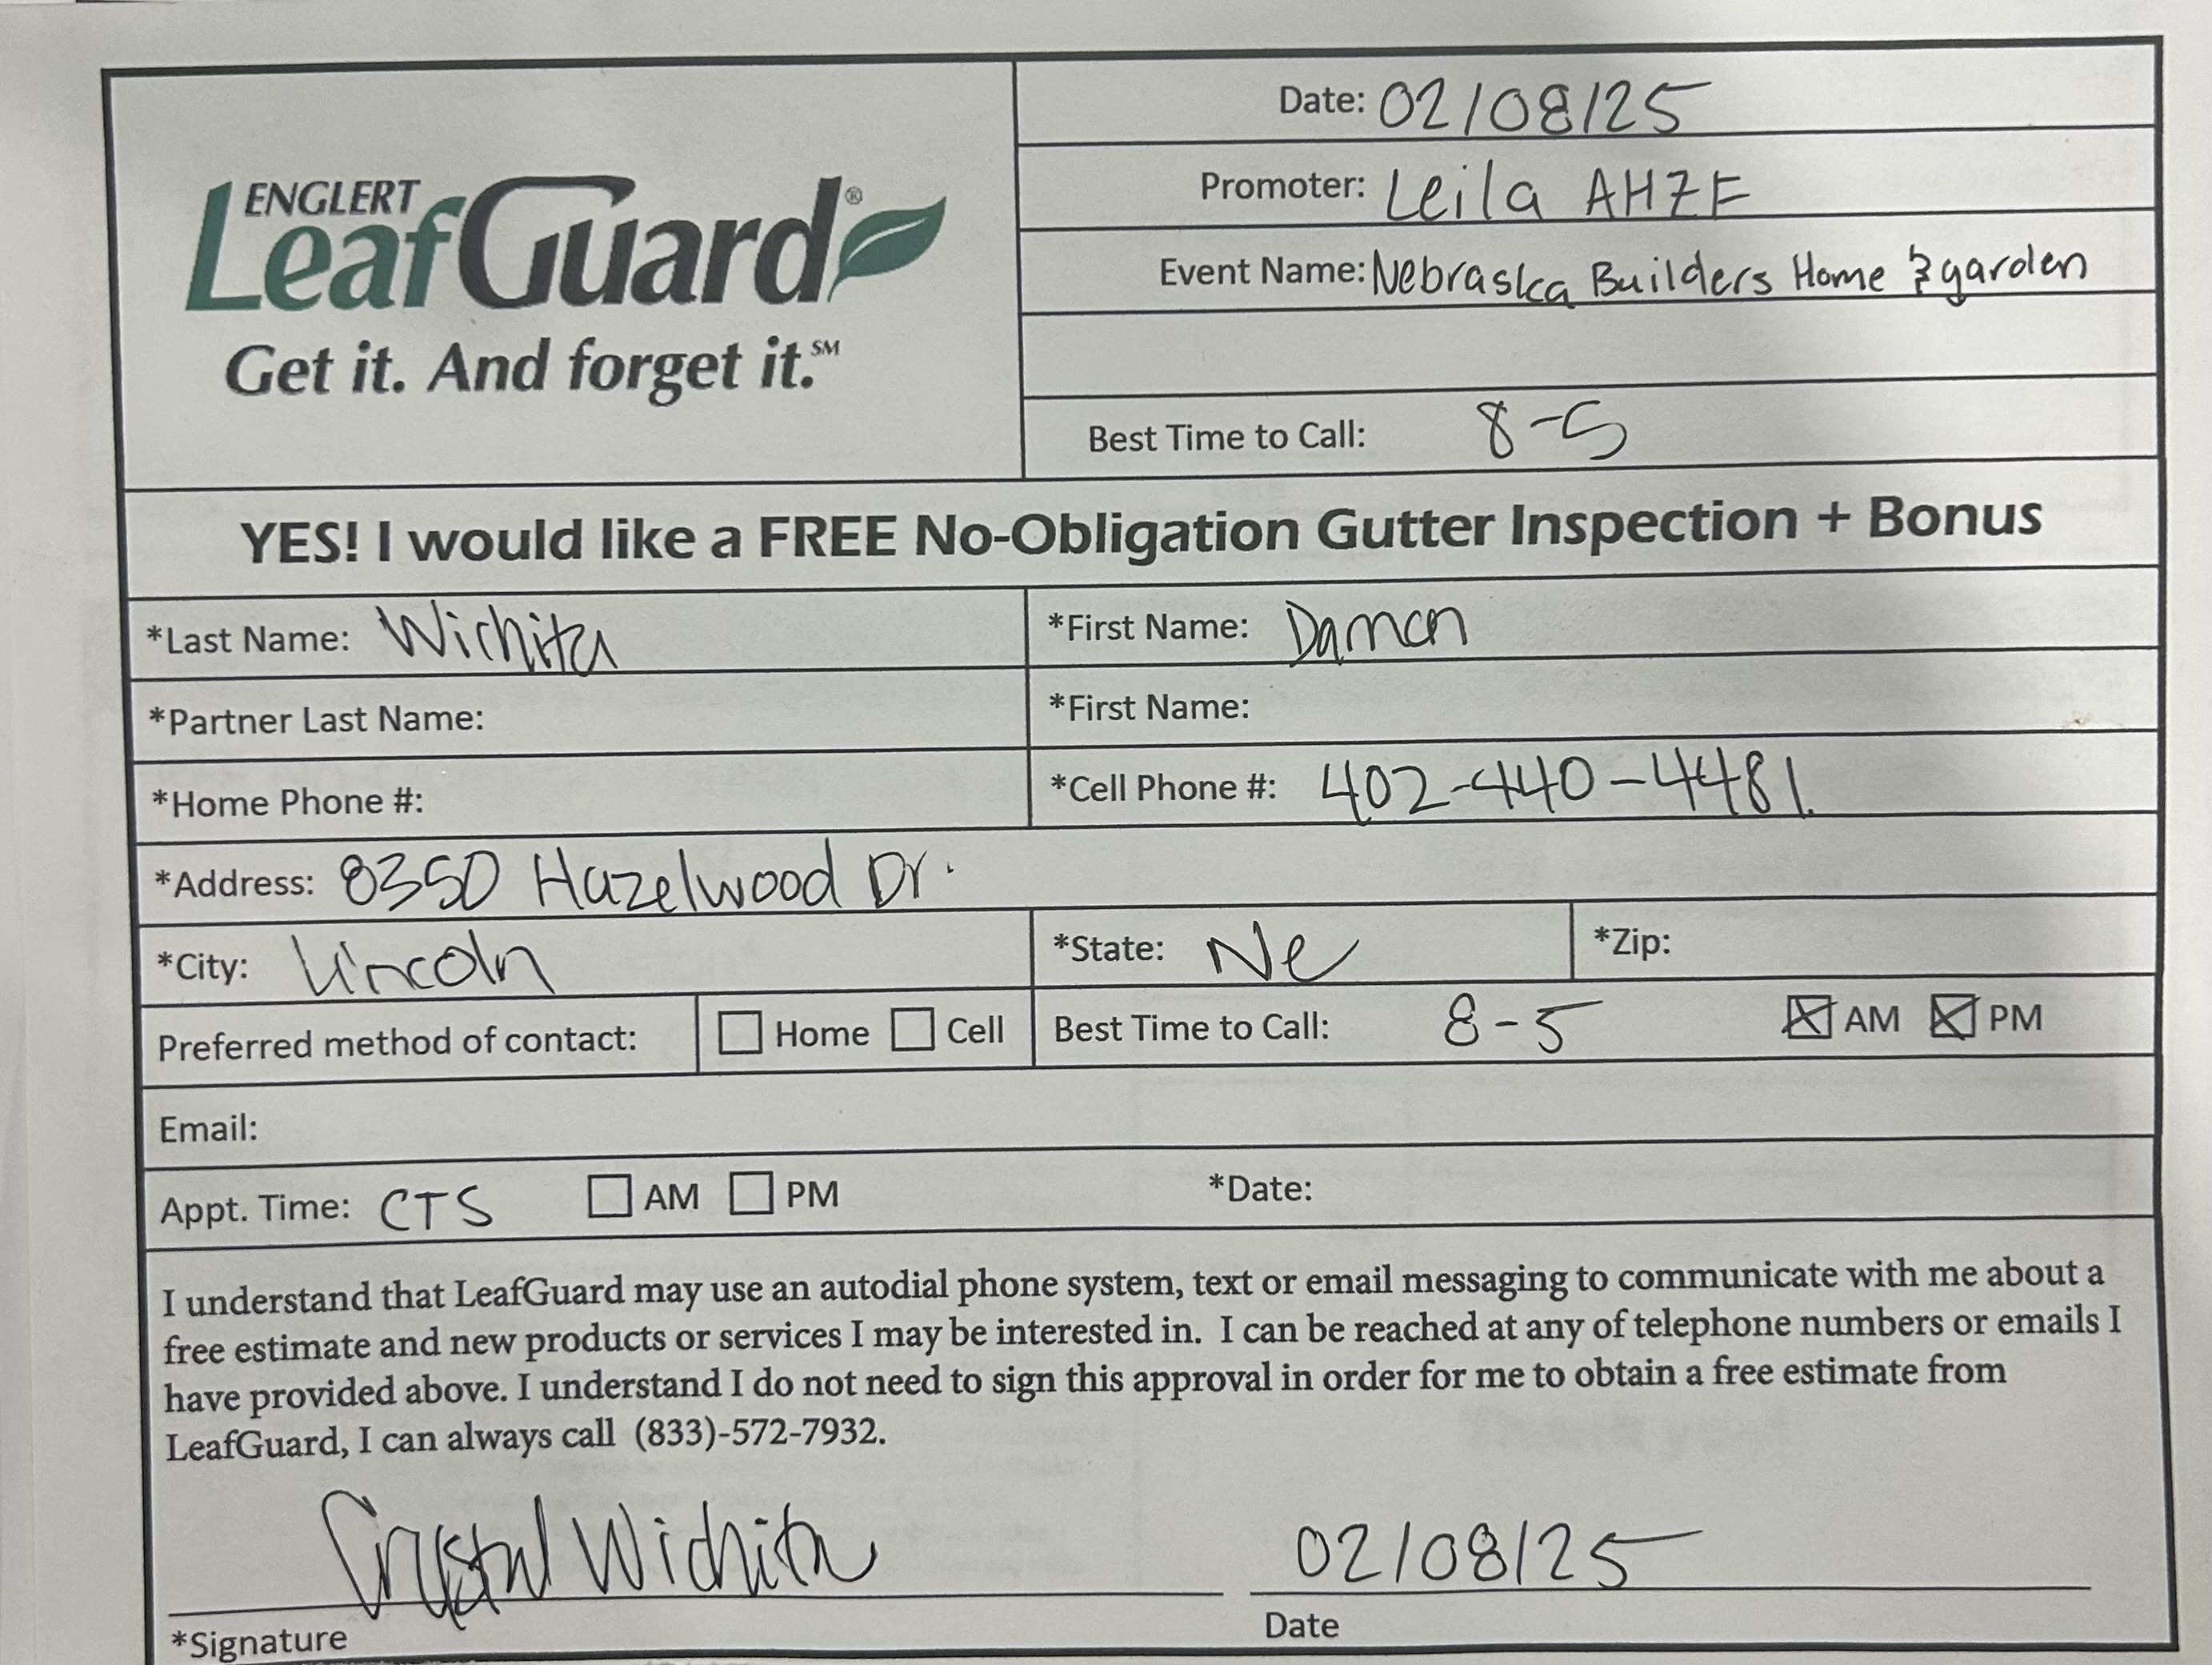 ENGLERT
LeafGuard®
Get it. And forget it.SM
Date: 02/08/25
Promoter: Leila AHZF
Event Name: Nebraska Builders Home & garden
Best Time to Call: 8-5
YES! I would like a FREE No-Obligation Gutter Inspection + Bonus
*Last Name: Wichita *First Name: Damon
*Partner Last Name: *First Name:
*Home Phone #: *Cell Phone #: 402-440-4481
*Address: 8350 Hazelwood Dr.
*City: Lincoln *State: Ne *Zip:
Preferred method of contact: ☐ Home ☐ Cell Best Time to Call: 8-5 ☒ AM ☒ PM
Email:
Appt. Time: CTS ☐ AM ☐ PM *Date:
I understand that LeafGuard may use an autodial phone system, text or email messaging to communicate with me about a
free estimate and new products or services I may be interested in. I can be reached at any of telephone numbers or emails I
have provided above. I understand I do not need to sign this approval in order for me to obtain a free estimate from
LeafGuard, I can always call (833)-572-7932.
Crystal Wichita 02/08/25
*Signature Date